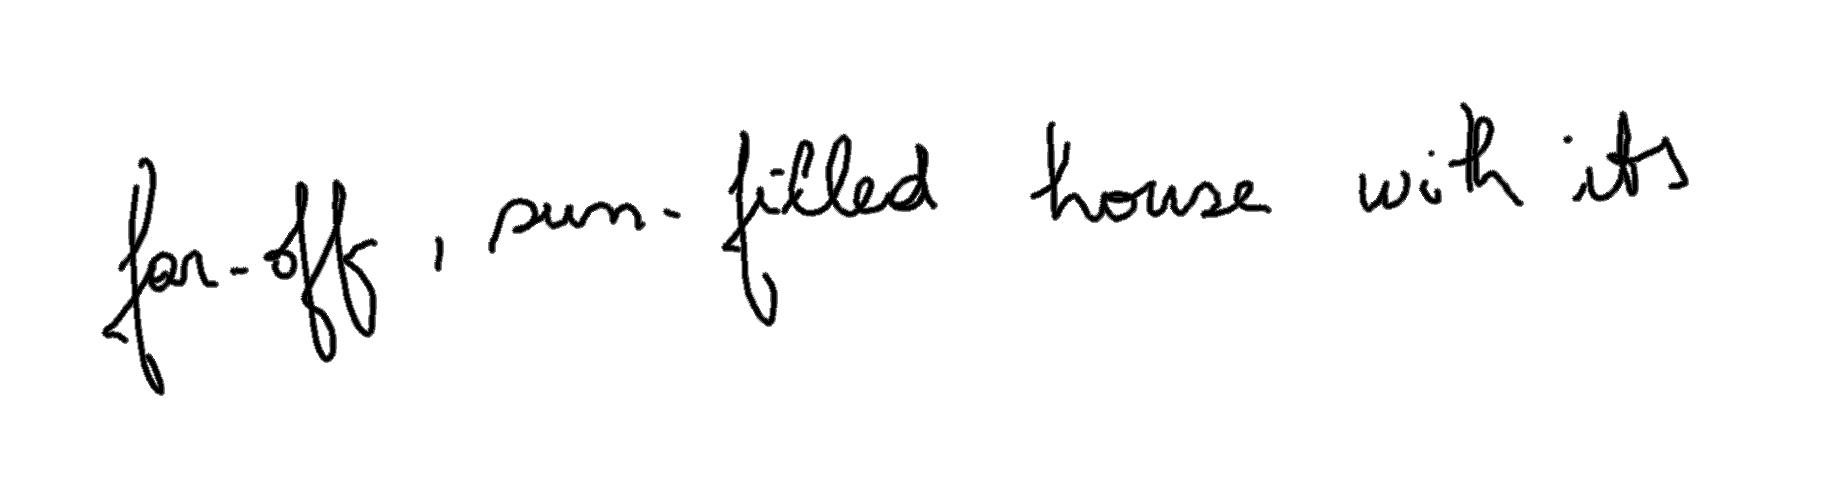 far-off, sun-filled house with its